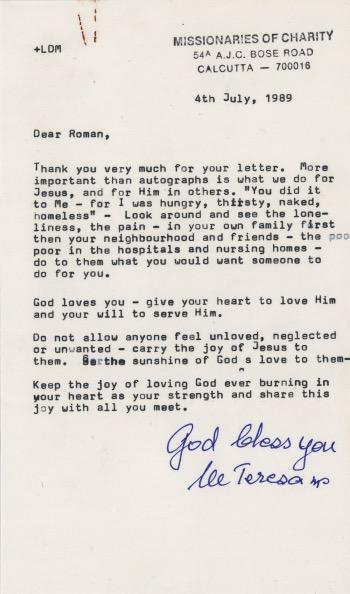 MISSIONARIES OF CHARITY
+LDM
54A A.J.C. BOSE ROAD
CALCUTTA — 700016
4th July, 1989
Dear Roman,
Thank you very much for your letter. More
important than autographs is what we do for
Jesus, and for Him in others. "You did it
to Me - for I was hungry, thirsty, naked,
homeless" - Look around and see the lone-
liness, the pain - in your own family first
then your neighbourhood and friends - the poo
poor in the hospitals and nursing homes -
do to them what you would want someone to
do for you.
God loves you - give your heart to love Him
and your will to serve Him.
Do not allow anyone feel unloved, neglected
or unwanted - carry the joy of Jesus to
them. Be the sunshine of God s love to them-
Keep the joy of loving God ever burning in
your heart as your strength and share this
joy with all you meet.
God bless you
lle Teresa mc